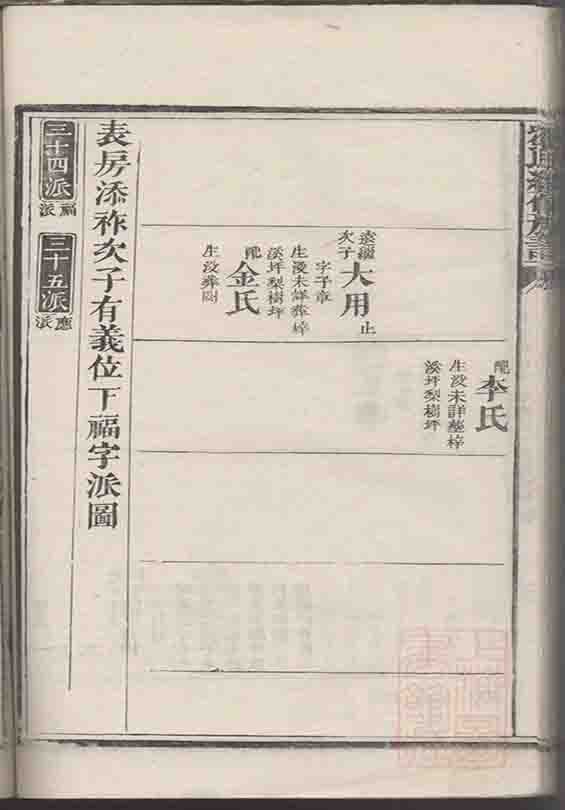 配
李氏
生没未詳塟梓
溪坪梨樹坪
次子
大用
止
字子章
生没未詳葬梓
溪坪梨樹坪
配
金氏
生没葬同
表房添祚次子有義位下福字派圖
三十四派
福派
三十五派
應派